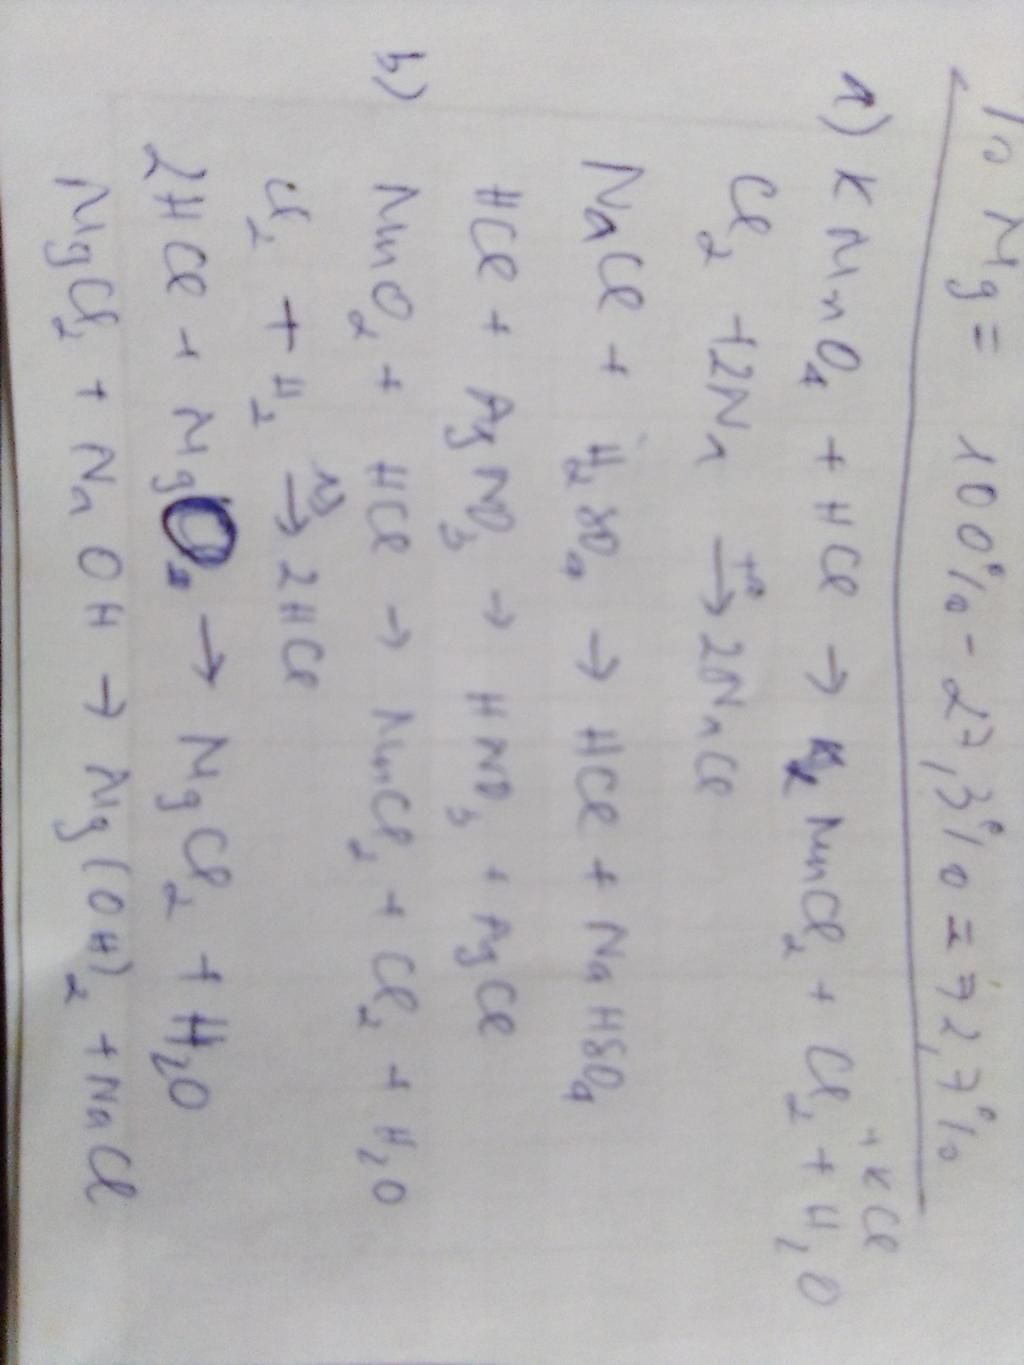 % Mg = 100% - 27,3% = 72,7%
+ KCl
a) KMnO4 + HCl → MnCl2 + Cl2 + H2O
Cl2 + 2Na →t° 2NaCl
NaCl + H2SO4 → HCl + NaHSO4
HCl + AgNO3 → HNO3 + AgCl
b) MnO2 + HCl → MnCl2 + Cl2 + H2O
Cl2 + H2 → 2HCl
2HCl + MgO → MgCl2 + H2O
MgCl2 + NaOH → Mg(OH)2 + NaCl